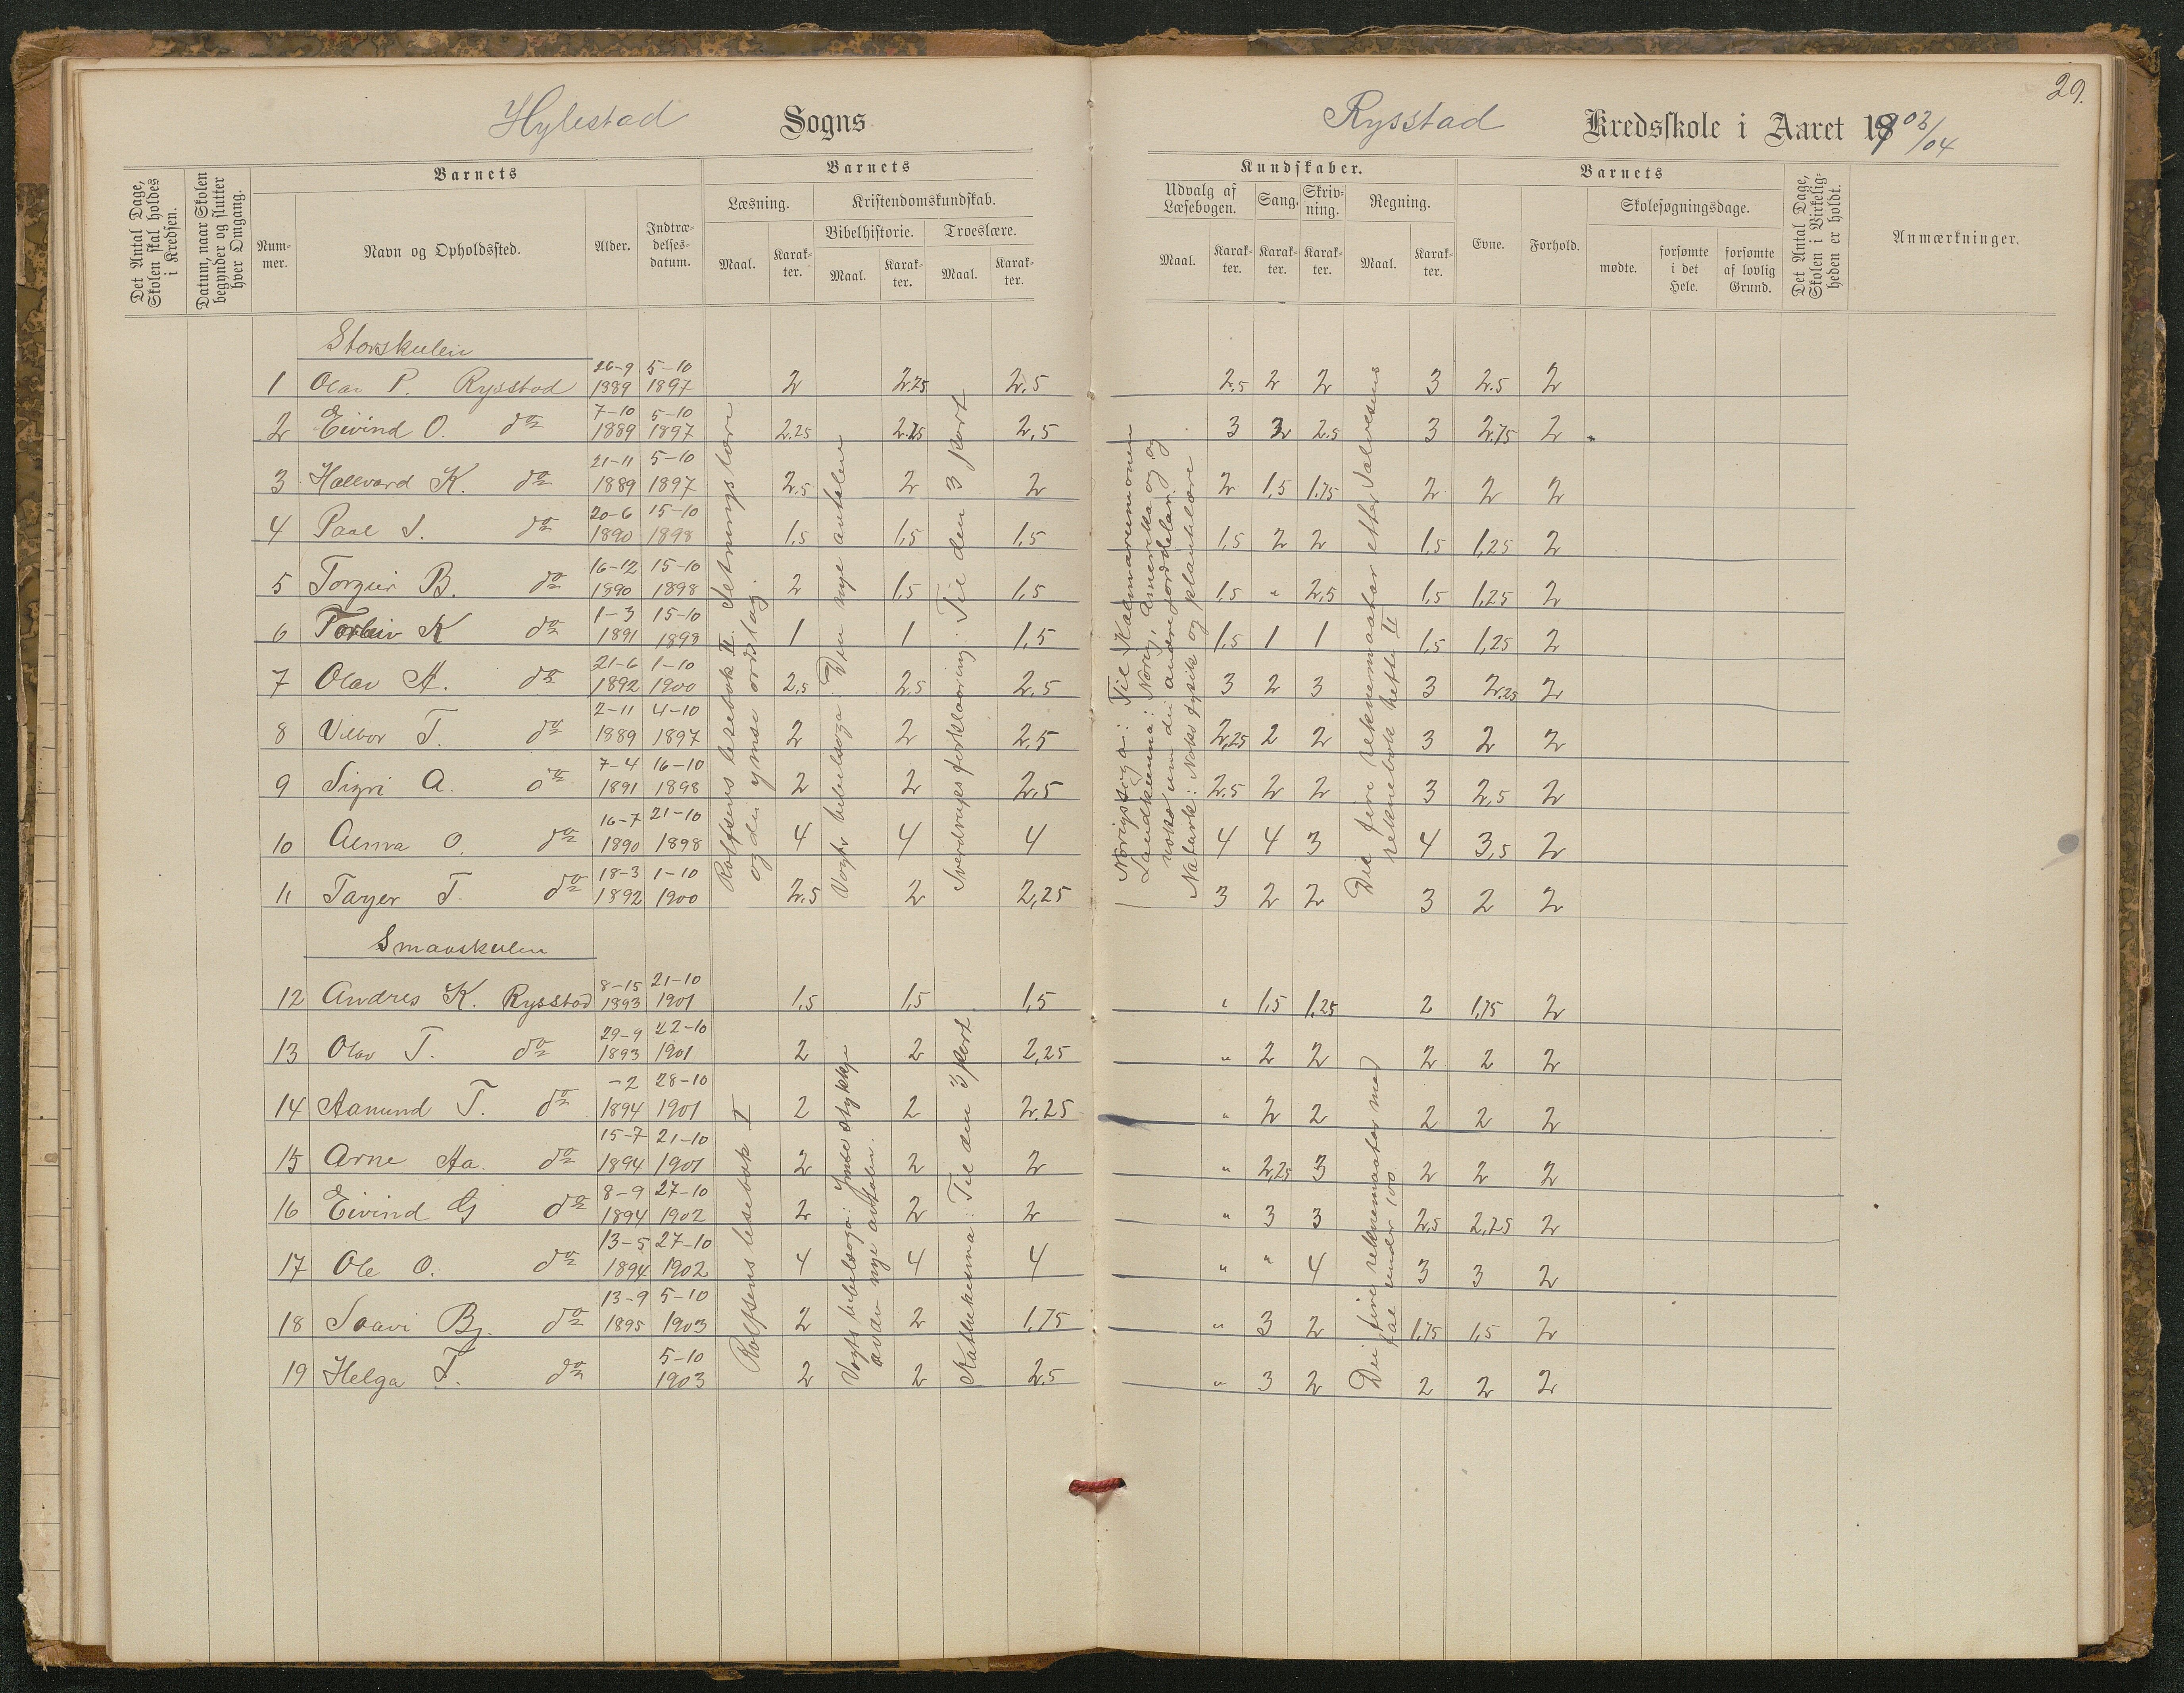 29.
Hylestad Sogns
Rysstad Kredsskole i Aaret 1903/04
Det Antal Dage, Skolen skal holdes i Kredsen.
Datum, naar Skolen begynder og slutter hver Omgang.
Barnets
Nummer.
Navn og Opholdssted.
Alder.
Indtrædelsesdatum.
Barnets
Læsning.
Maal.
Karakter.
Kristendomskundskab.
Bibelhistorie.
Maal.
Karakter.
Troeslære.
Maal.
Karakter.
Kundskaber.
Udvalg af Læsebogen.
Maal.
Karakter.
Sang.
Karakter.
Skrivning.
Karakter.
Regning.
Maal.
Karakter.
Barnets
Evne.
Forhold.
Skolesøgningsdage.
mødte.
forsømte i det Hele.
forsømte af lovlig Grund.
Det Antal Dage, Skolen i Virkeligheden er holdt.
Anmærkninger.
Storskulen
1 Olav P. Rysstad 26-9 1889 5-10 1897 2 2.25 2,5 2,5 2 2 3 2.5 2
2 Eivind O. do 7-10 1889 5-10 1897 2,25 2.25 2,5 3 3 2.5 3 2.75 2
3 Hallvard K. do 21-11 1889 5-10 1897 2.5 2 2 2 1,5 1,75 2 2 2
4 Paal S. do 20-6 1890 15-10 1898 1,5 1,5 1,5 1,5 2 2 1,5 1,25 2
5 Torgeir B. do 16-12 1890 15-10 1898 2 1,5 1,5 1,5 " 2,5 1,5 1,25 2
6 Torleiv K do 1-3 1891 15-10 1898 1 1 1,5 1,5 1 1 1,5 1,25 2
7 Olav A. do 21-6 1892 1-10 1900 2,5 2,5 2,5 3 2 3 3 2.25 2
8 Vilbor T. do 2-11 1889 4-10 1897 2 2 2,5 2,25 2 2 3 2 2
9 Sigri A. do 7-4 1891 16-10 1898 2 2 2,5 2.5 2 2 3 2,5 2
10 Alma O. do 16-7 1890 21-10 1898 4 4 4 4 4 3 4 3,5 2
11 Targer T. do 18-3 1892 1-10 1900 2.5 2 2,25 3 2 2 3 2 2
Rolfsens lesebok II. Setningslære
og dei ymse ordslag.
Vogts bibelsoga: Den nye avtalen
Sverdrups forklaaring: Til den 3 part
Norigssoga: Til Kalmarunionen
Landkunna: Norig, Amerika og og
noko um dei andre jorddelar
Naturk: Noko fysik og plantelære
Dei fire reknemaatar etter Salvesens
reknebok hefte II
Smaaskulen
12 Andres K. Rysstad 8-15 1893 21-10 1901 1,5 1,5 1,5 " 1,5 1,25 2 1,75 2
13 Olav T. do 29-9 1893 22-10 1901 2 2 2,25 " 2 2 2 2 2
14 Aanund T. do -2 1894 28-10 1901 2 2 2,25 " 2 2 2 2 2
15 Arne Aa. do 15-7 1894 21-10 1901 2 2 2 " 2,25 3 2 2 2
16 Eivind G do 8-9 1894 27-10 1902 2 2 2 " 3 3 2.5 2,25 2
17 Ole O. do 13-5 1894 27-10 1902 4 4 4 " " 4 3 3 2
18 Saavi Bj. do 13-9 1895 5-10 1903 2 2 1,75 " 3 2 1,75 1,5 2
19 Helga T. do 5-10 1903 2 2 2.5 " 3 2 2 2 2
Rolfsens lesebok I
Vogts bibelsoga: Ymse stykkje
av den nye avtalen.
Katekisma: Til den 3 part
Dei fire reknemaatar med
tal under 100